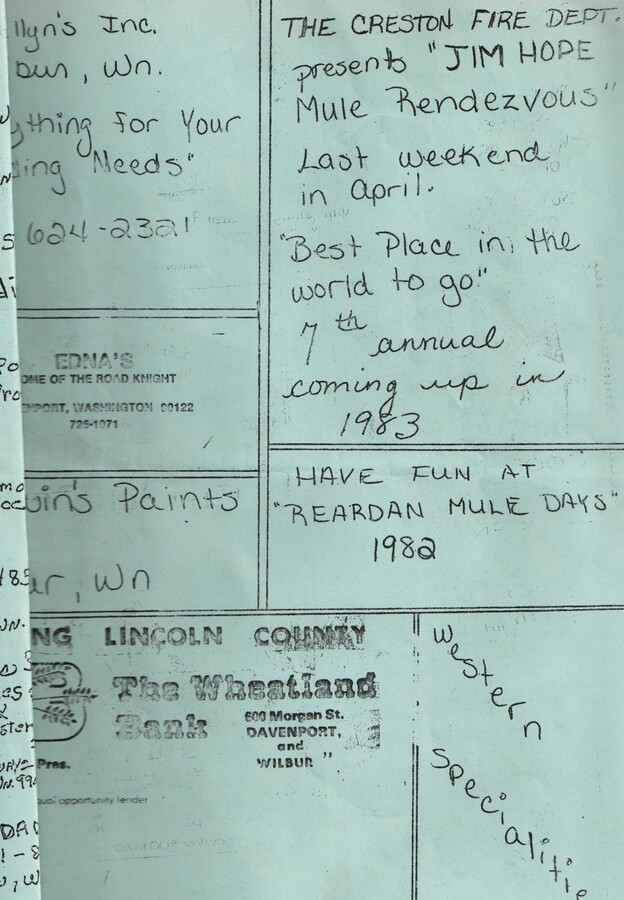 llyn's Inc.
bur, Wn.
ything for Your
ing Needs"
624-2321
THE CRESTON FIRE DEPT.
presents "JIM HOPE
Mule Rendezvous"
Last weekend
in April.
"Best Place in the
world to go!"
7th annual
coming up in
1983
EDNA'S
OME OF THE ROAD KNIGHT
NPORT, WASHINGTON 99122
725-1071
HAVE FUN AT
"REARDAN MULE DAYS"
1982
vin's Paints
ur, Wn
NG LINCOLN COUNTY
The Wheatland
Bank
600 Morgan St.
DAVENPORT,
and
WILBUR "
Pres.
qual opportunity lender
Western
Specialitie